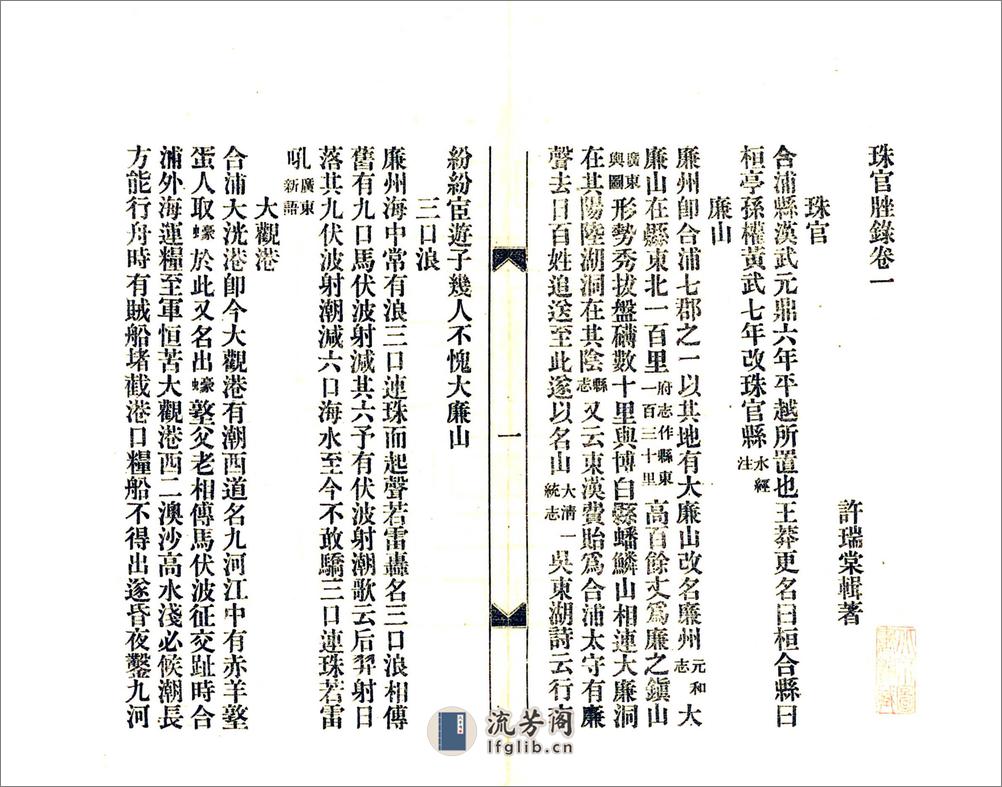 珠官脞錄卷一
許瑞棠輯著
珠官
合浦縣漢武元鼎六年平越所置也王莽更名曰桓合縣曰
桓亭孫權黃武七年改珠官縣水經注
廉山
廉州卽合浦七郡之一以其地有大廉山改名廉州元和志大
廉山在縣東北一百里府志作縣東一百三十里高百餘丈爲廉之鎭山
廣東輿圖形勢秀拔盤礴數十里與博白縣蟠鱗山相連大廉洞
在其陽陸湖洞在其陰縣志又云東漢費貽爲合浦太守有廉
聲去日百姓追送至此遂以名山大淸一統志吳東湖詩云行
一
紛紛宦遊子幾人不愧大廉山
三口浪
廉州海中常有浪三口連珠而起聲若雷轟名三口浪相傳
舊有九口馬伏波射減其六予有伏波射潮歌云后羿射日
落其九伏波射潮減六口海水至今不敢驕三口連珠若雷
吼廣東新語
大觀港
合浦大洸港卽今大觀港有潮西道名九河江中有赤羊墪
蛋人取蠔於此又名出蠔墪父老相傳馬伏波征交趾時合
浦外海運糧至軍恒苦大觀港西二澳沙高水淺必候潮長
方能行舟時有賊船堵截港口糧船不得出遂昏夜鑿九河
流芳阁
lfglib.cn